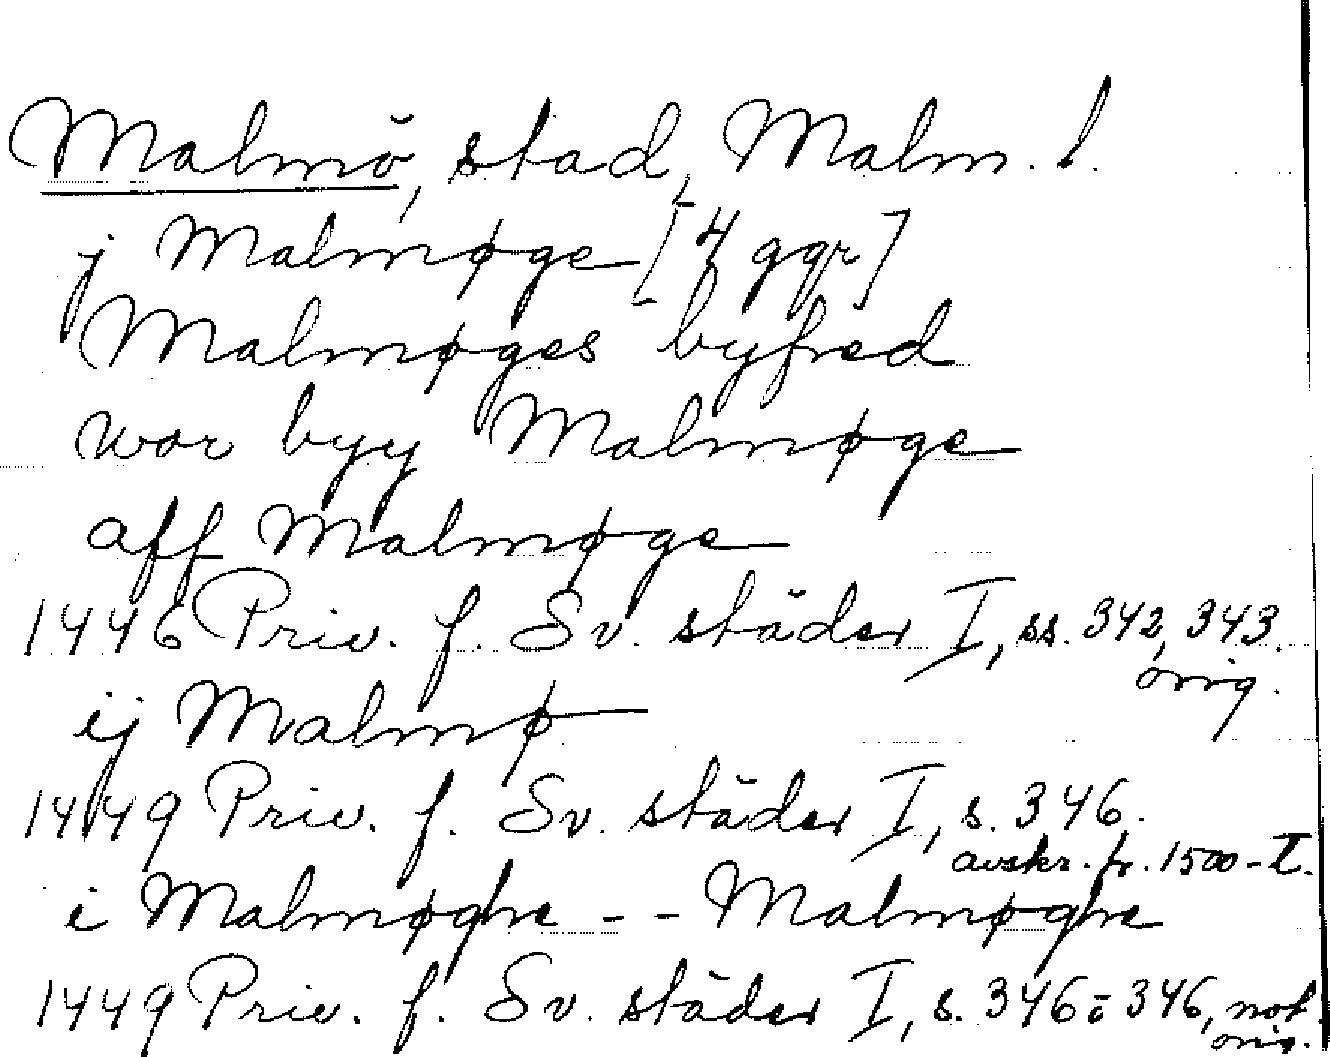 Malmö, stad, Malm. l.
j Malmøge [4 ggr]
Malmøges byfred
wor byy Malmøge
aff Malmøge
1446 Priv. f. Sv. städer I, ss. 342, 343.
orig.
ij Malmø
1449 Priv. f. Sv. städer I, s. 346.
avskr. fr. 1500-t.
i Malmøghe - - Malmøghe
1449 Priv. f. Sv. städer I, s. 346 = 346, not.
orig.